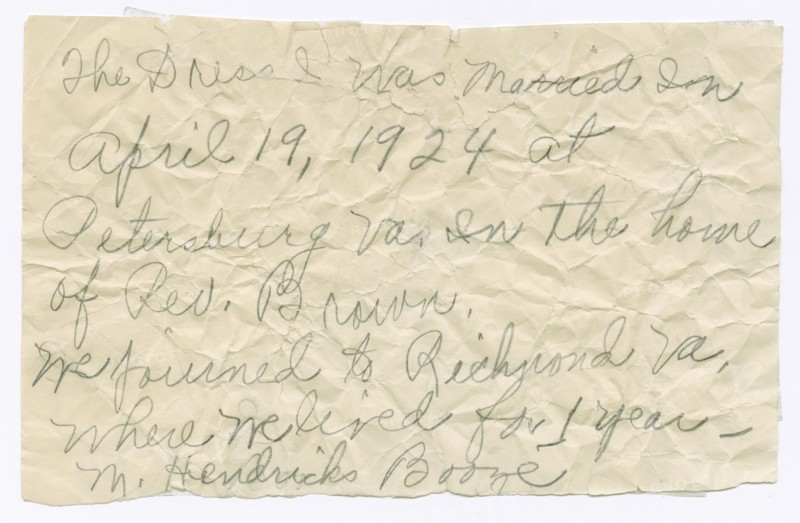 The Dress I was Married In
April 19, 1924 at
Petersburg Va. In the home
of Rev. Brown.
we journed to Richmond Va.
where we lived for 1 year —
M. Hendricks Boone